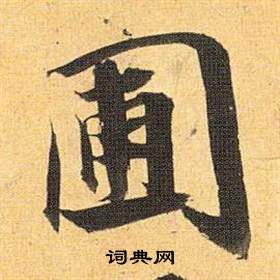 圃
词典网